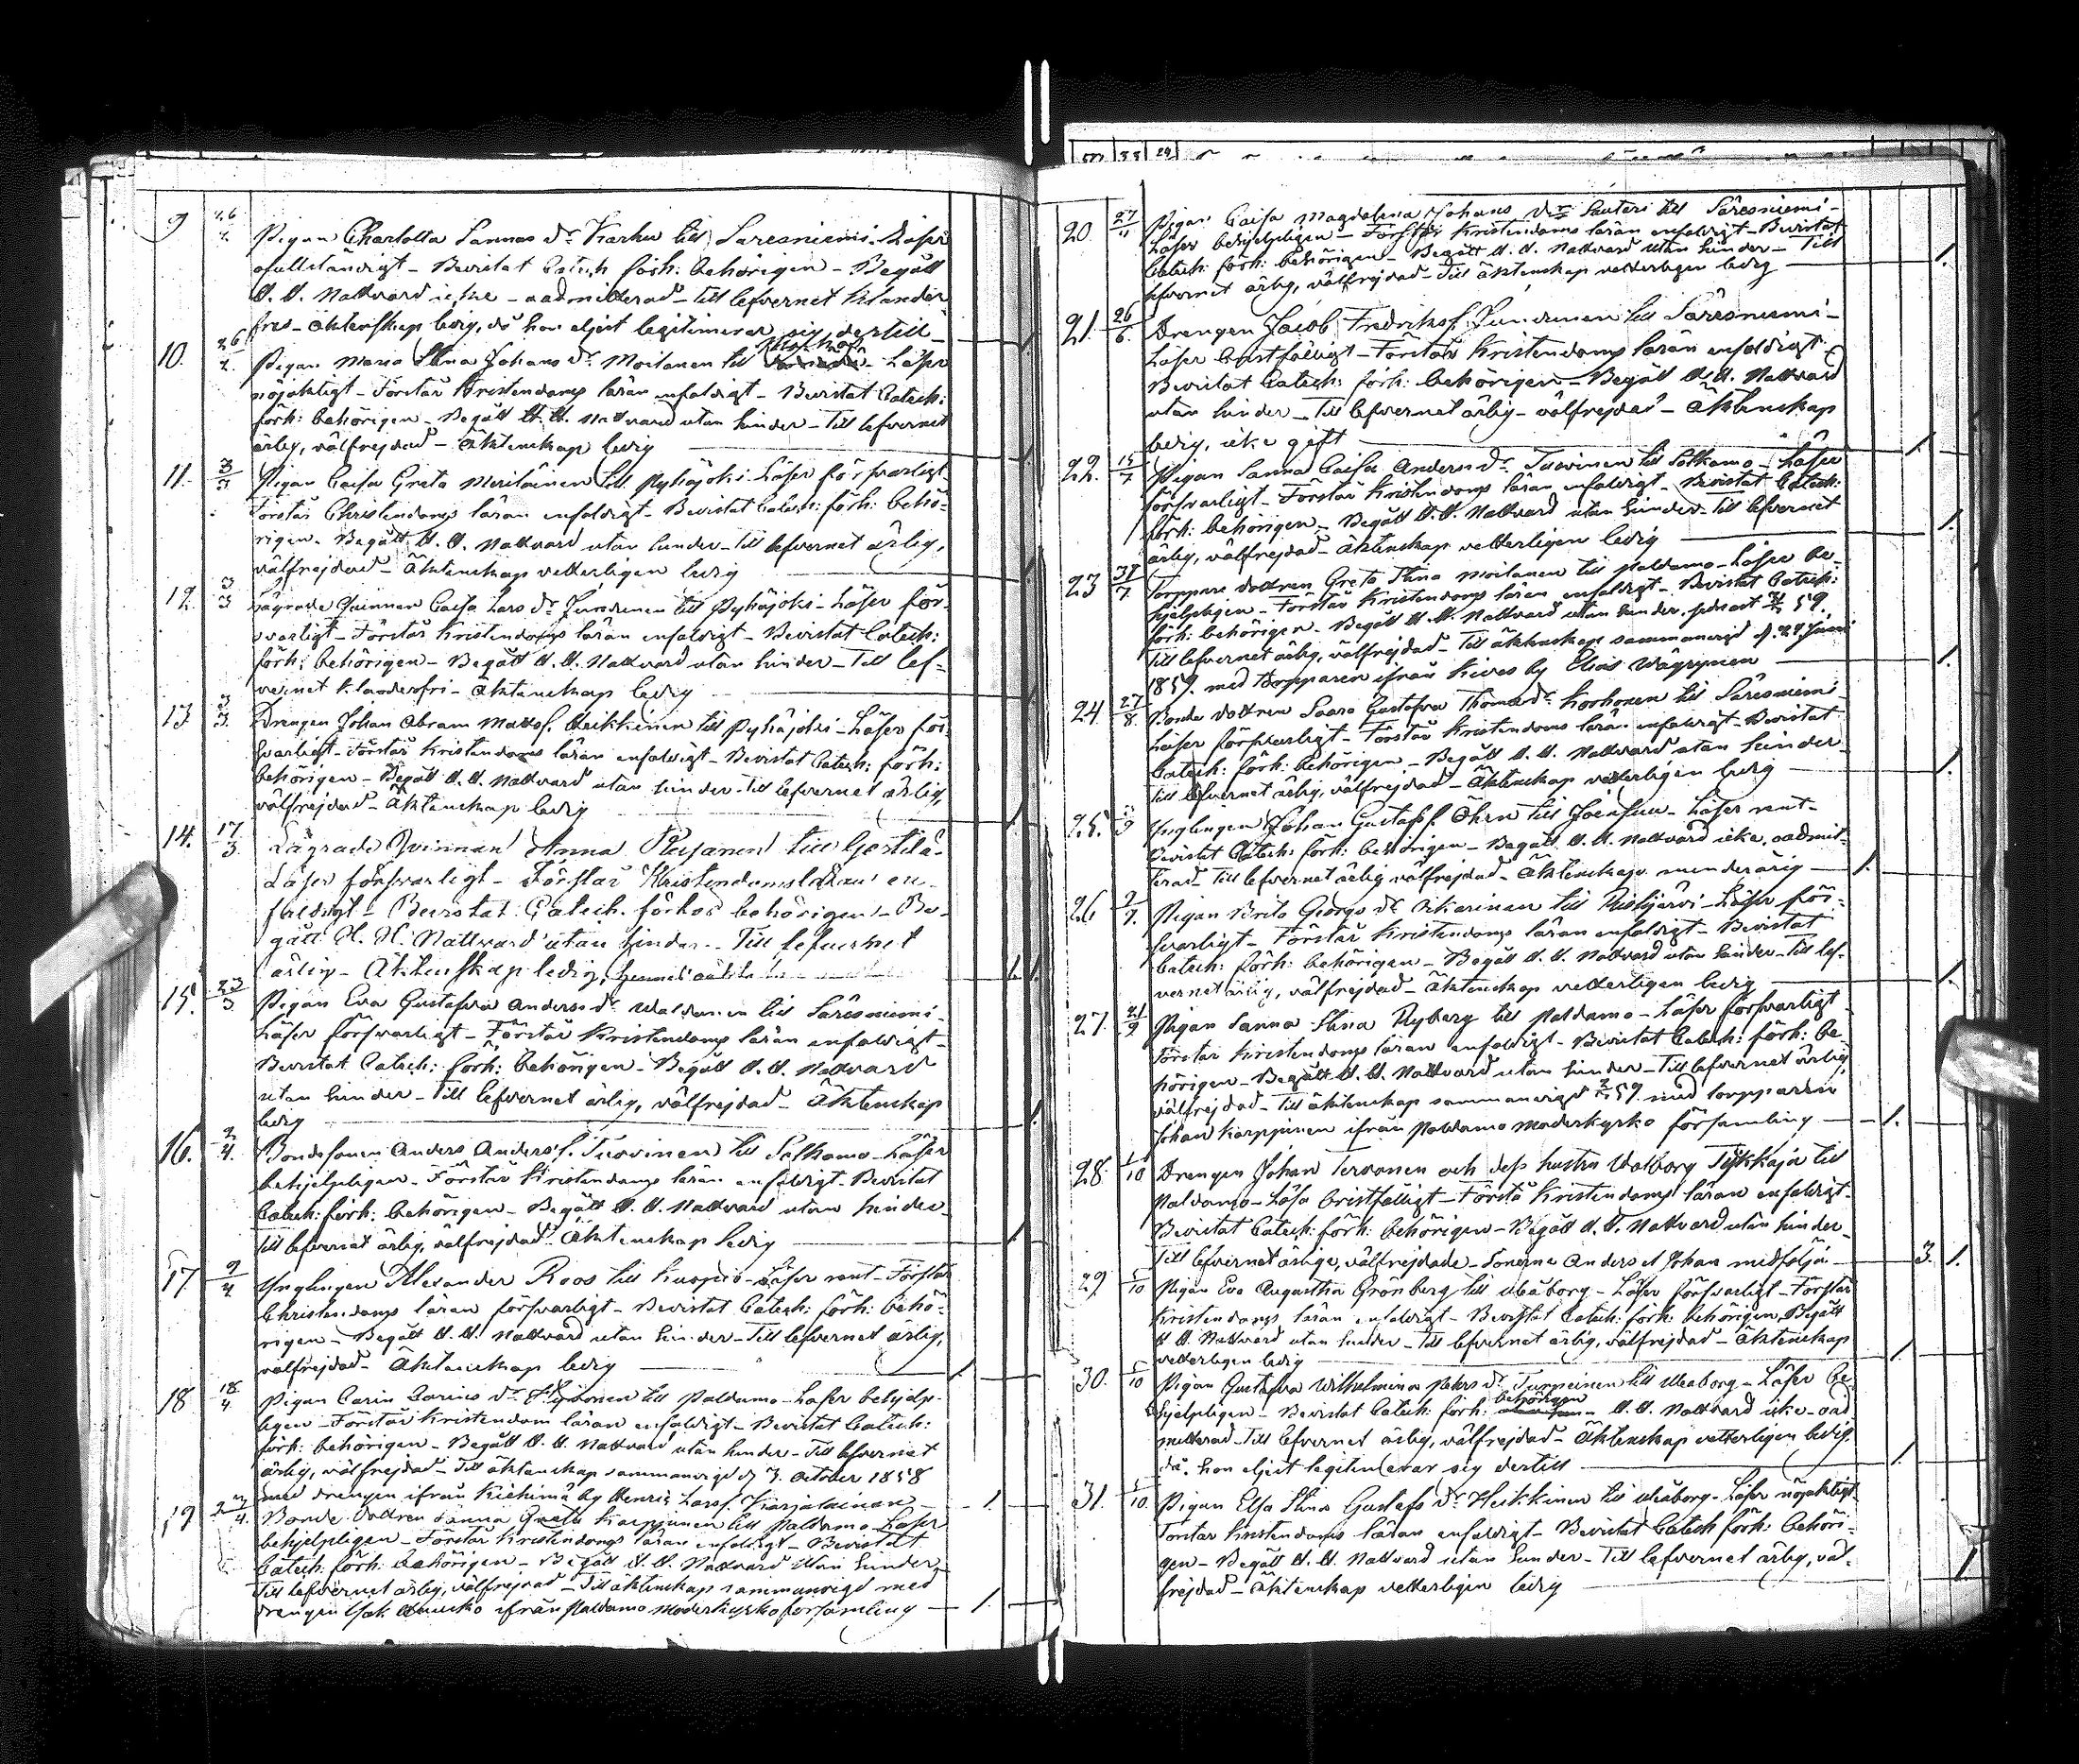 9 26/2 Pigan Charlotta Sannas dr Karhu till Säresniemi. Läser
ofullständigt – Bevistat Catech förh: behörigen – Begått
H. H. Nattvard icke – admitterad – till lefvernet klander
fri – Äktenskap ledig, då hon eljest legitimerar sig dertill –
10. 26/2 Pigan Maria Stina Johans dr Moilanen till – Läser
nöjaktigt – Förstår Kristendoms läran enfaldigt – Bevistat Catech:
förh: behörigen – Begått H. H. Nattvard utan hinder – Till lefvernet
ärlig, välfrejdad – Äktenskap ledig
11. 3/3 Pigan Caisa Greta Moilainen till Pyhäjoki – Läser försvarligt
Förstår Christendoms läran enfaldigt – Bevistat Catech: förh: behö-
rigen – Begått H. H. Nattvard utan hinder – till lefvernet ärlig,
välfrejdad – Äktenskap vetterligen ledig
12. 3/3 Lägrade Qvinnan Caisa Lars dr Jundunen till Pyhäjoki – Läser för-
svarligt – Förstår Kristendoms läran enfaldigt – Bevistat Catech:
förh: behörigen – Begått H. H. Nattvard utan hinder – Till lef-
vernet klanderfri – Äktenskap ledig
13 3/3. Drengen Johan Abram Matts s. Heikkinen till Pyhäjoki – Läser för-
svarligt – Förstår Kristendoms läran enfaldigt – Bevistat Catech: förh:
behörigen – Begått H. H. Nattvard utan hinder – till lefvernet ärlig,
välfrejdad – Äktenskap ledig 1.
14. 17/3 Lägrade Qvinnan Anna till
Läser försvarligt – Förstår Kristendomsläran en-
faldigt – Bevistat Catech. förhör behörigen – Be-
gått H. H. Nattvard utan hinder – Till lefvernet
ärlig – Äktenskap ledig, 1. 1.
15. 23/3 Pigan Eva Gustafva Anders dr till Säresniemi –
Läser försvarligt – Förstår Kristendoms läran enfaldigt –
Bevistat Catech: förh: behörigen – Begått H. H. Nattvard
utan hinder – Till lefvernet ärlig, välfrejdad – Äktenskap
ledig 1.
16. 2/4. Bondesonen Anders Anders s. Tuovinen till Sotkamo – Läser
behjelpligen – Förstår Kristendoms läran enfaldigt – Bevistat
Catech: förh: behörigen – Begått H. H. Nattvard utan hinder –
till lefvernet ärlig, välfrejdad. Äktenskap ledig 1
17 9/4 Ynglingen Alexander Roos till Kuopio – Läser rent – Förstår
Christendoms läran försvarligt – Bevistat Catech: förh: behö-
rigen – Begått H. H. Nattvard utan hinder – Till lefvernet ärlig,
välfrejdad – Äktenskap ledig 1.
18 18/4. Pigan Carin dr till Paldamo – Läser behjelp-
ligen – Förstår Kristendom läran enfaldigt – Bevistat Catech:
förh: behörigen – Begått H. H. Nattvard utan hinder – Till lefvernet
ärlig, välfrejdad – Till äktenskap sammanvigd d. 3. October 1858
med drengen ifrån Kiehimä by Henric Lars s. Karjalainen 1.
19 Bonde Dottren Sanna Greta Karppinen till Paldamo – Läser
behjelpligen – Förstår Kristendoms läran enfaldigt – Bevistat
Catech: förh: behörigen – Begått H. H. Nattvard utan hinder
Till lefvernet ärlig, välfrejdad – Till äktenskap sammanvigd med
drengen ifrån Paldamo moderkyrko församling 1.
20. 27/ Pigan Caisa Magdalena Johans dr Sauteri till Säresniemi –
Läser behjelpligen – Förstår Kristendoms läran enfaldigt – Bevistat
Catech: förh: behörigen – Begått H. H. Nattvard utan hinder – Till
lefvernet ärlig, välfrejdad – Till äktenskap vetterligen ledig 1.
21. 26/6. Drengen Jacob Fredriks s. Jundunen till Säresniemi –
Läser bristfälligt – Förstår Kristendoms läran enfaldigt
Bevistat Catech: förh: behörigen – Begått H. H. Nattvard
utan hinder – till lefvernet ärlig – välfrejdad – Äktenskap
ledig, icke gift 1.
22. 15/7 Pigan Sanna Caisa Anders dr Tuovinen till Sotkamo – Läser
försvarligt – Förstår Kristendoms läran enfaldigt – Bevistat Catech:
förh: behörigen – Begått H. H. Nattvard utan hinder – till lefvernet
ärlig, välfrejdad – Äktenskap vetterligen ledig 1.
23 Torppare dottren Greta Stina Moilanen till Paldamo – Läser be-
hjelpligen – Förstår Kristendoms läran enfaldigt – Bevistat Catech:
förh: behörigen – Begått H. H. Nattvard utan hinder, 59.
till lefvernet ärlig, välfrejdad – till äktenskap sammanvigd d. 24 Juni
1859. med torpparen ifrån Kives by Elias Wäyrynen 1.
24 27/8. Bonde dottren Saara Gustafva Thomas dr Korhonen till Säresniemi
Läser försvarligt – Förstår Kristendoms läran enfaldigt – Bevistat
Catech: förh: behörigen – Begått H. H. Nattvard utan hinder –
till lefvernet ärlig, välfrejdad – Äktenskap vetterligen ledig 1.
25. Ynglingen Johan Gustaf s. Öhrn till Joensuu – Läser rent –
Bevistat Catech: förh: behörigen – Begått H. H. Nattvard icke, oadmit-
terad – till lefvernet ärlig välfrejdad – Äktenskap minderårig 1.
26 Pigan Brita Georgs dr Pikarinen till – Läser för-
svarligt – Förstår Kristendoms läran enfaldigt – Bevistat
Catech: förh: behörigen – Begått H. H. Nattvard utan hinder – Till lef-
vernet ärlig, välfrejdad – Äktenskap vetterligen ledig 1.
27. 21/9 Pigan Sanna Stina Nyberg till Paldamo – Läser försvarligt
Förstår Kristendoms läran enfaldigt – Bevistat Catech: förh: be-
hörigen – Begått H. H. Nattvard utan hinder – Till lefvernet ärlig
välfrejdad – till äktenskap sammanvigd 59. med torpparen
Johan Karppinen ifrån Paldamo moderkyrko församling 1.
28. 1/10 Drengen Johan Tervonen och dess hustru Walborg Tykkäjä till
Paldamo – Läsa bristfälligt – Förstå Kristendoms läran enfaldigt –
Bevistat Catech: förh: behörigen – Begått H. H. Nattvard utan hinder –
Till lefvernet ärlige, välfrejdade – Sonerne Anders et Johan medfölja 3. 1.
29 /10 Pigan Eva Augustha Grönberg till Uleåborg – Läser försvarligt – Förstår
Kristendoms läran enfaldigt – Bevistat Catech: förh: behörigen, Begått
H. H. Nattvard utan hinder – till lefvernet ärlig, välfrejdad – Äktenskap
vetterligen ledig 1
30. /10 Pigan Gustafva Wilhelmina Pehrs dr Turpeinen till Uleåborg – Läser be-
hjelpligen – Bevistat Catech: förh: behörigen – H. H. Nattvard icke – oad
mitterad – till lefvernet ärlig, välfrejdad – Äktenskap vetterligen ledig,
då hon eljest legitimerar sig dertill 1
31. /10. Pigan Elsa Stina Gustafs dr Heikkinen till Uleåborg – Läser nöjaktigt
Förstår Kristendoms läran enfaldigt – Bevistat Catech förh: behöri-
gen – Begått H. H. Nattvard utan hinder – Till lefvernet ärlig, väl-
frejdad – Äktenskap vetterligen ledig 1